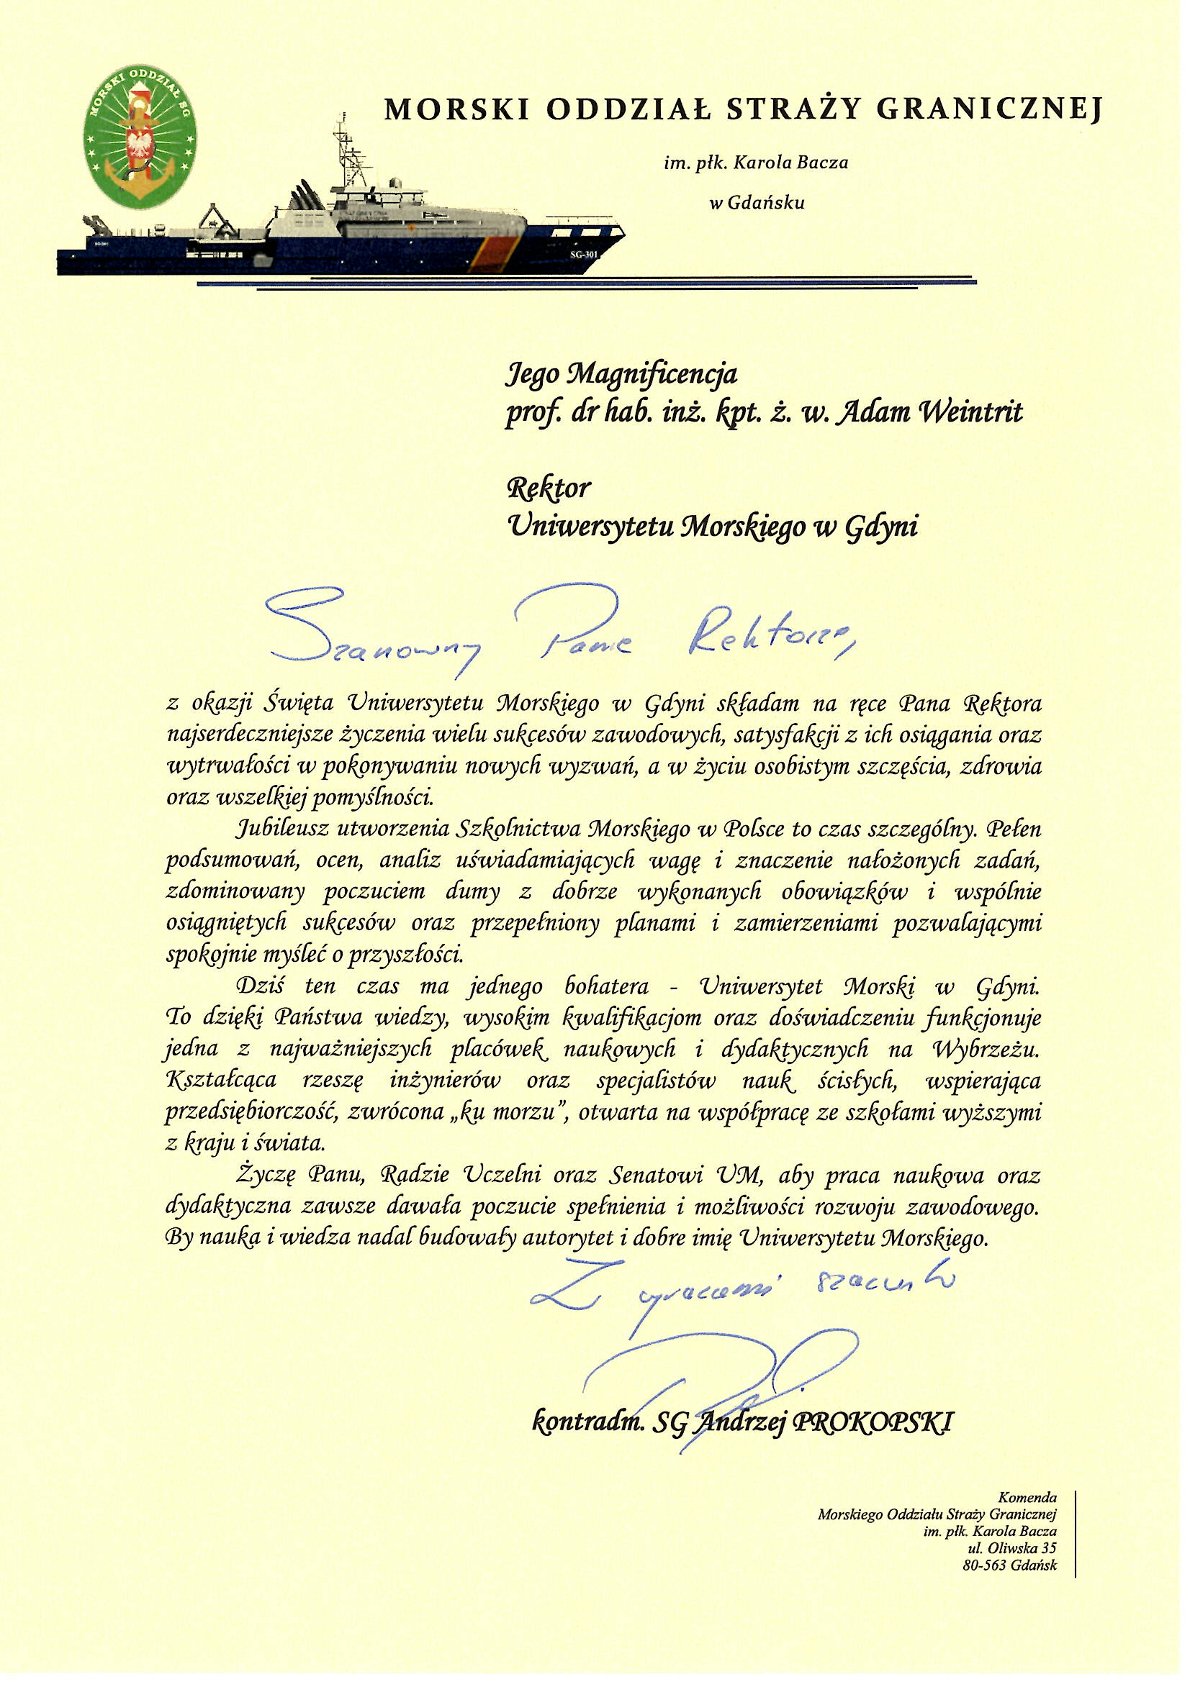 MORSKI ODDZIAŁ SG
MORSKI ODDZIAŁ STRAŻY GRANICZNEJ
im. płk. Karola Bacza
w Gdańsku
SG-301
Jego Magnificencja
prof. dr hab. inż. kpt. ż. w. Adam Weintrit
Rektor
Uniwersytetu Morskiego w Gdyni
Szanowny Panie Rektorze,
z okazji Święta Uniwersytetu Morskiego w Gdyni składam na ręce Pana Rektora
najserdeczniejsze życzenia wielu sukcesów zawodowych, satysfakcji z ich osiągania oraz
wytrwałości w pokonywaniu nowych wyzwań, a w życiu osobistym szczęścia, zdrowia
oraz wszelkiej pomyślności.
Jubileusz utworzenia Szkolnictwa Morskiego w Polsce to czas szczególny. Pełen
podsumowań, ocen, analiz uświadamiających wagę i znaczenie nałożonych zadań,
zdominowany poczuciem dumy z dobrze wykonanych obowiązków i wspólnie
osiągniętych sukcesów oraz przepełniony planami i zamierzeniami pozwalającymi
spokojnie myśleć o przyszłości.
Dziś ten czas ma jednego bohatera - Uniwersytet Morski w Gdyni.
To dzięki Państwa wiedzy, wysokim kwalifikacjom oraz doświadczeniu funkcjonuje
jedna z najważniejszych placówek naukowych i dydaktycznych na Wybrzeżu.
Kształcąca rzeszę inżynierów oraz specjalistów nauk ścisłych, wspierająca
przedsiębiorczość, zwrócona „ku morzu”, otwarta na współpracę ze szkołami wyższymi
z kraju i świata.
Życzę Panu, Radzie Uczelni oraz Senatowi UM, aby praca naukowa oraz
dydaktyczna zawsze dawała poczucie spełnienia i możliwości rozwoju zawodowego.
By nauka i wiedza nadal budowały autorytet i dobre imię Uniwersytetu Morskiego.
Z wyrazami szacunku
kontradm. SG Andrzej PROKOPSKI
Komenda
Morskiego Oddziału Straży Granicznej
im. płk. Karola Bacza
ul. Oliwska 35
80-563 Gdańsk